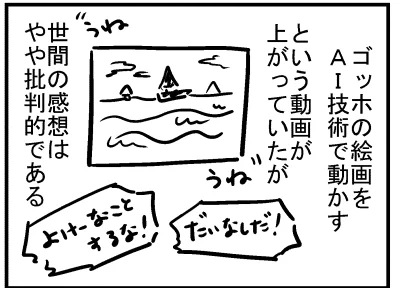 ゴッホの絵画を
AI技術で動かす
という動画が
上がっていたが
うね〃
うね〃
世間の感想は
やや批判的である
だいなしだ!
よけーなこと
するな!